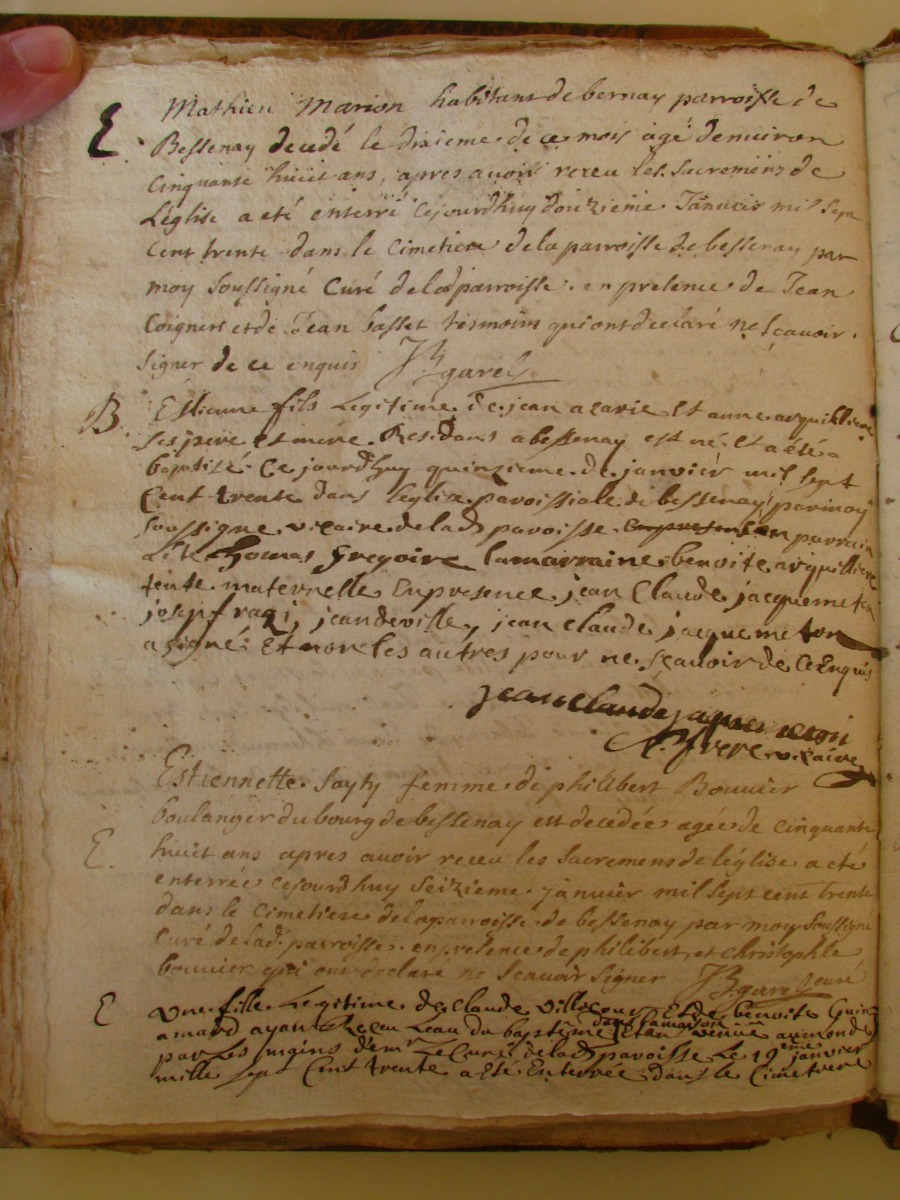 E. Mathieu Marion habitant de bernay parroisse de
Bessenay decedé le dixieme de ce mois agé denuiron
Cinquante huiet ans, apres auoir receu les Sacremens de
Léglise a eté enterré cejourdhuy douzieme Januier mil sept
Cent trente dans le Cimetiere de la parroisse de bessenay par
moy Soussigné Curé de lad parroisse. en presence de Jean
et de Jean basset tesmoins qui ont declaré ne Scauoir
Signer de ce enquis JB garel
B. Estienne fils Legitime de jean acarie Et anne arquilliere
Ses pere et mere Residans a bessenay est né Et a eté
baptisé Ce jourdhuy quinzieme de janvier mil sept
Cent trente dans l'eglise paroissiale de bessenay par moy
Soussigne vicaire de lad paroisse Le parrain
a eté thomas Gregoire la marraine benoite arquilliere
tente maternelle En presence jean Claude jacquemeton
josep ragi, jean deville, jean claude jacquemeton
a signé Et non les autres pour ne Sçauoir de ce Enquis
jean claude jaquemeton
frere vicaire
Estiennette Sayty femme de philibert Bouuier
boulanger du bourg de bessenay est decedée agée de cinquante
E. huict ans apres auoir receu les Sacremens de léglise a eté
enterrée cejourdhuy Seizieme janvier mil sept cent trente
dans le Cimetiere de la parroisse de bessenay par moy Soussigné
Curé de lad. parroisse en presence de philibert et christophle
bouuier qui ont declaré ne Scauoir Signer JB garel Curé
E Une fille Legitime de Claude Et de benoite
ayant Receu Leau du baptême dans la maison Et en venue au monde
par Les mains de mr Le Curé de lad paroisse Le 19eme janvier
mille sept Cent trente a eté Enterrée dans le Cimetiere